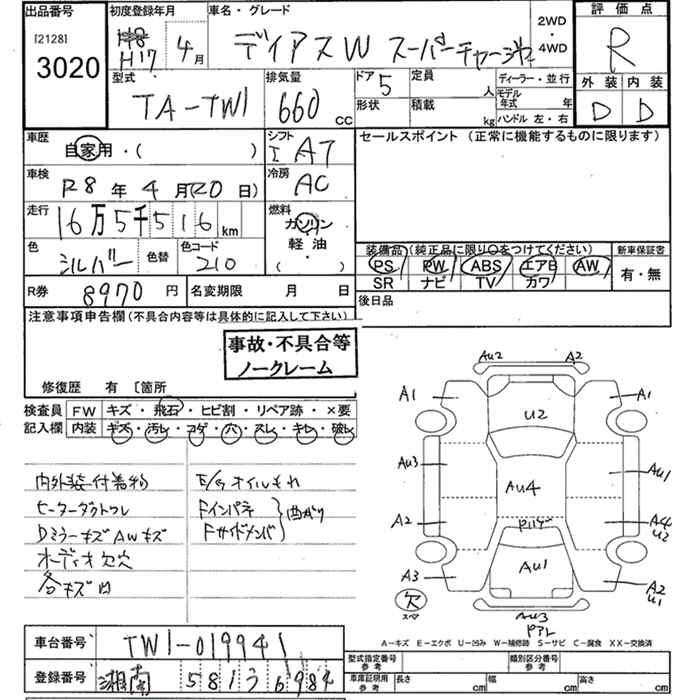 出品番号 初度登録年月 車名・グレード 2WD・4WD 評価点
[2128] H17 4月 ディアスW スーパーチャージャー R
3020
型式 排気量 ドア 定員 ディーラー・並行 外装 内装
TA-TW1 660 CC 5 人 モデル年式 年 D D
形状 積載 kg ハンドル 左・右
車歴 シフト セールスポイント (正常に機能するものに限ります)
自家用・( ) I AT
車検 冷房
R8年4月(20日) AC
走行 燃料
16万5千516km ガソリン
軽油
( )
色 色替 色コード 装備品 (純正品に限り○をつけてください) 新車保証書
シルバー 210 PS PW ABS エアB AW 有・無
SR ナビ TV カワ
R券 8970円 名変期限 月 日 後日品
注意事項申告欄(不具合内容等は具体的に記入して下さい)
事故・不具合等
ノークレーム
修復歴 有 〔箇所
検査員 FW キズ・飛石・ヒビ割・リペア跡・×要
記入欄 内装 キズ・汚レ・コゲ・穴・スレ・キレ・破レ
内外装付着物 E/gオイルもれ
ヒーターダクトワレ Fインパネ
DミラーキズAWキズ Fサイドメンバ 曲がり
オーディオ欠穴
各キズ凹
Au2 A2
A1 A1
U2
Au3 Au1
Au4
A2 A4
U2
Au1
A3 A2
U1
欠
スペア
Au3
A-キズ E-エクボ U-凹み W-補修跡 S-サビ C-腐食 XX-交換済
車台番号 TW1-019941
型式指定番号 参考 類別区分番号 参考
登録番号 湘南 581 6984
車庫証明用 参考 長さ cm 幅 cm 高さ cm